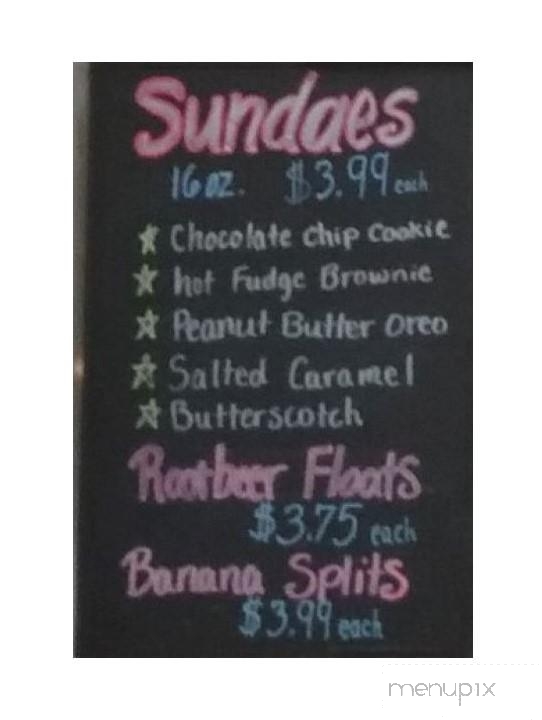 Sundaes
16 oz. $3.99 each
☆ Chocolate Chip Cookie
☆ hot Fudge Brownie
☆ Peanut Butter Oreo
☆ Salted Caramel
☆ Butterscotch
Rootbeer Floats
$3.75 each
Banana Splits
$3.99 each
menupix